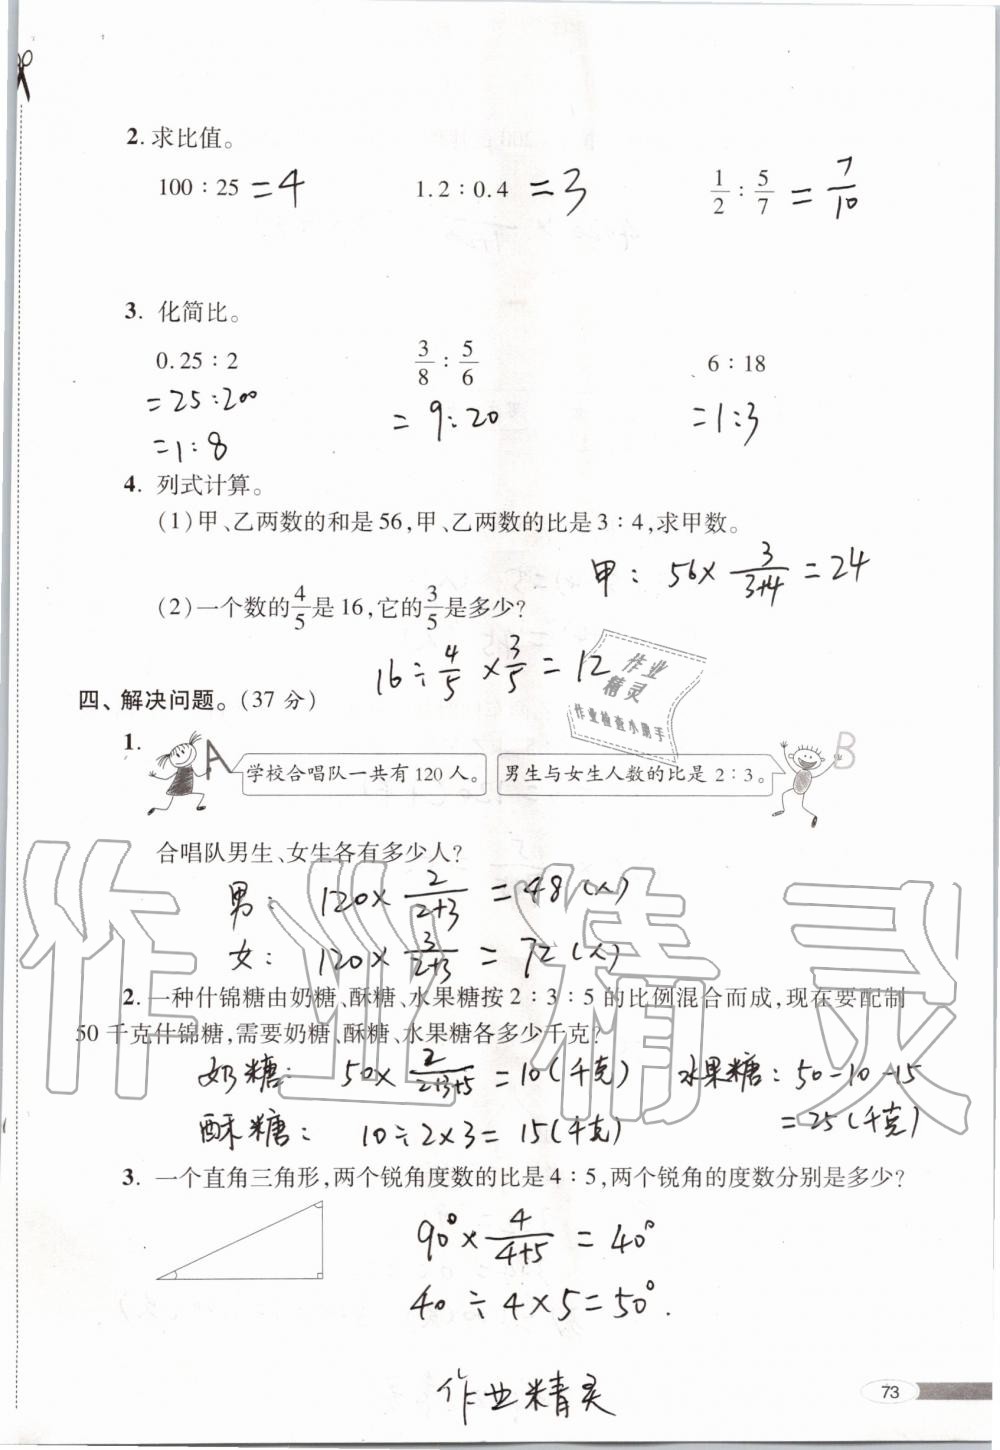 2. 求比值。
100 : 25 = 4    1.2 : 0.4 = 3    1/2 : 5/7 = 7/10
3. 化简比。
0.25 : 2    3/8 : 5/6    6 : 18
= 25 : 200    = 9 : 20    = 1 : 3
= 1 : 8
4. 列式计算。
(1)甲、乙两数的和是56,甲、乙两数的比是3 : 4,求甲数。
甲: 56 × 3/(3+4) = 24
(2)一个数的4/5是16,它的3/5是多少?
16 ÷ 4/5 × 3/5 = 12
作业
精灵
作业检查小助手
四、解决问题。(37 分)
1.
A 学校合唱队一共有120人。 男生与女生人数的比是 2 : 3。 B
合唱队男生、女生各有多少人?
男: 120 × 2/(2+3) = 48 (人)
女: 120 × 3/(2+3) = 72 (人)
作业精灵
2. 一种什锦糖由奶糖、酥糖、水果糖按 2 : 3 : 5 的比例混合而成,现在要配制
50 千克什锦糖,需要奶糖、酥糖、水果糖各多少千克?
奶糖: 50 × 2/(2+3+5) = 10 (千克)    水果糖: 50-10-15
酥糖: 10 ÷ 2 × 3 = 15 (千克)    = 25 (千克)
3. 一个直角三角形,两个锐角度数的比是4 : 5,两个锐角的度数分别是多少?
90° × 4/(4+5) = 40°
40 ÷ 4 × 5 = 50°.
作业精灵
73